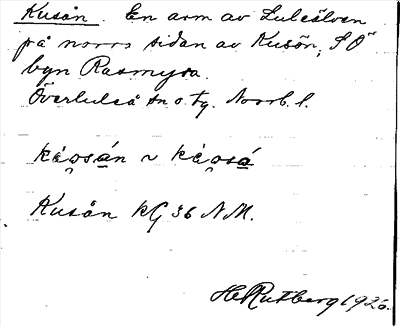 Kusån. En arm av Luleälven
på norra sidan av Kusön, S Ö
byn Rasmyra.
Överluleå sn o. tg. Norrb. l.
Kusån KG 36 N.M.
HRutberg 1926.